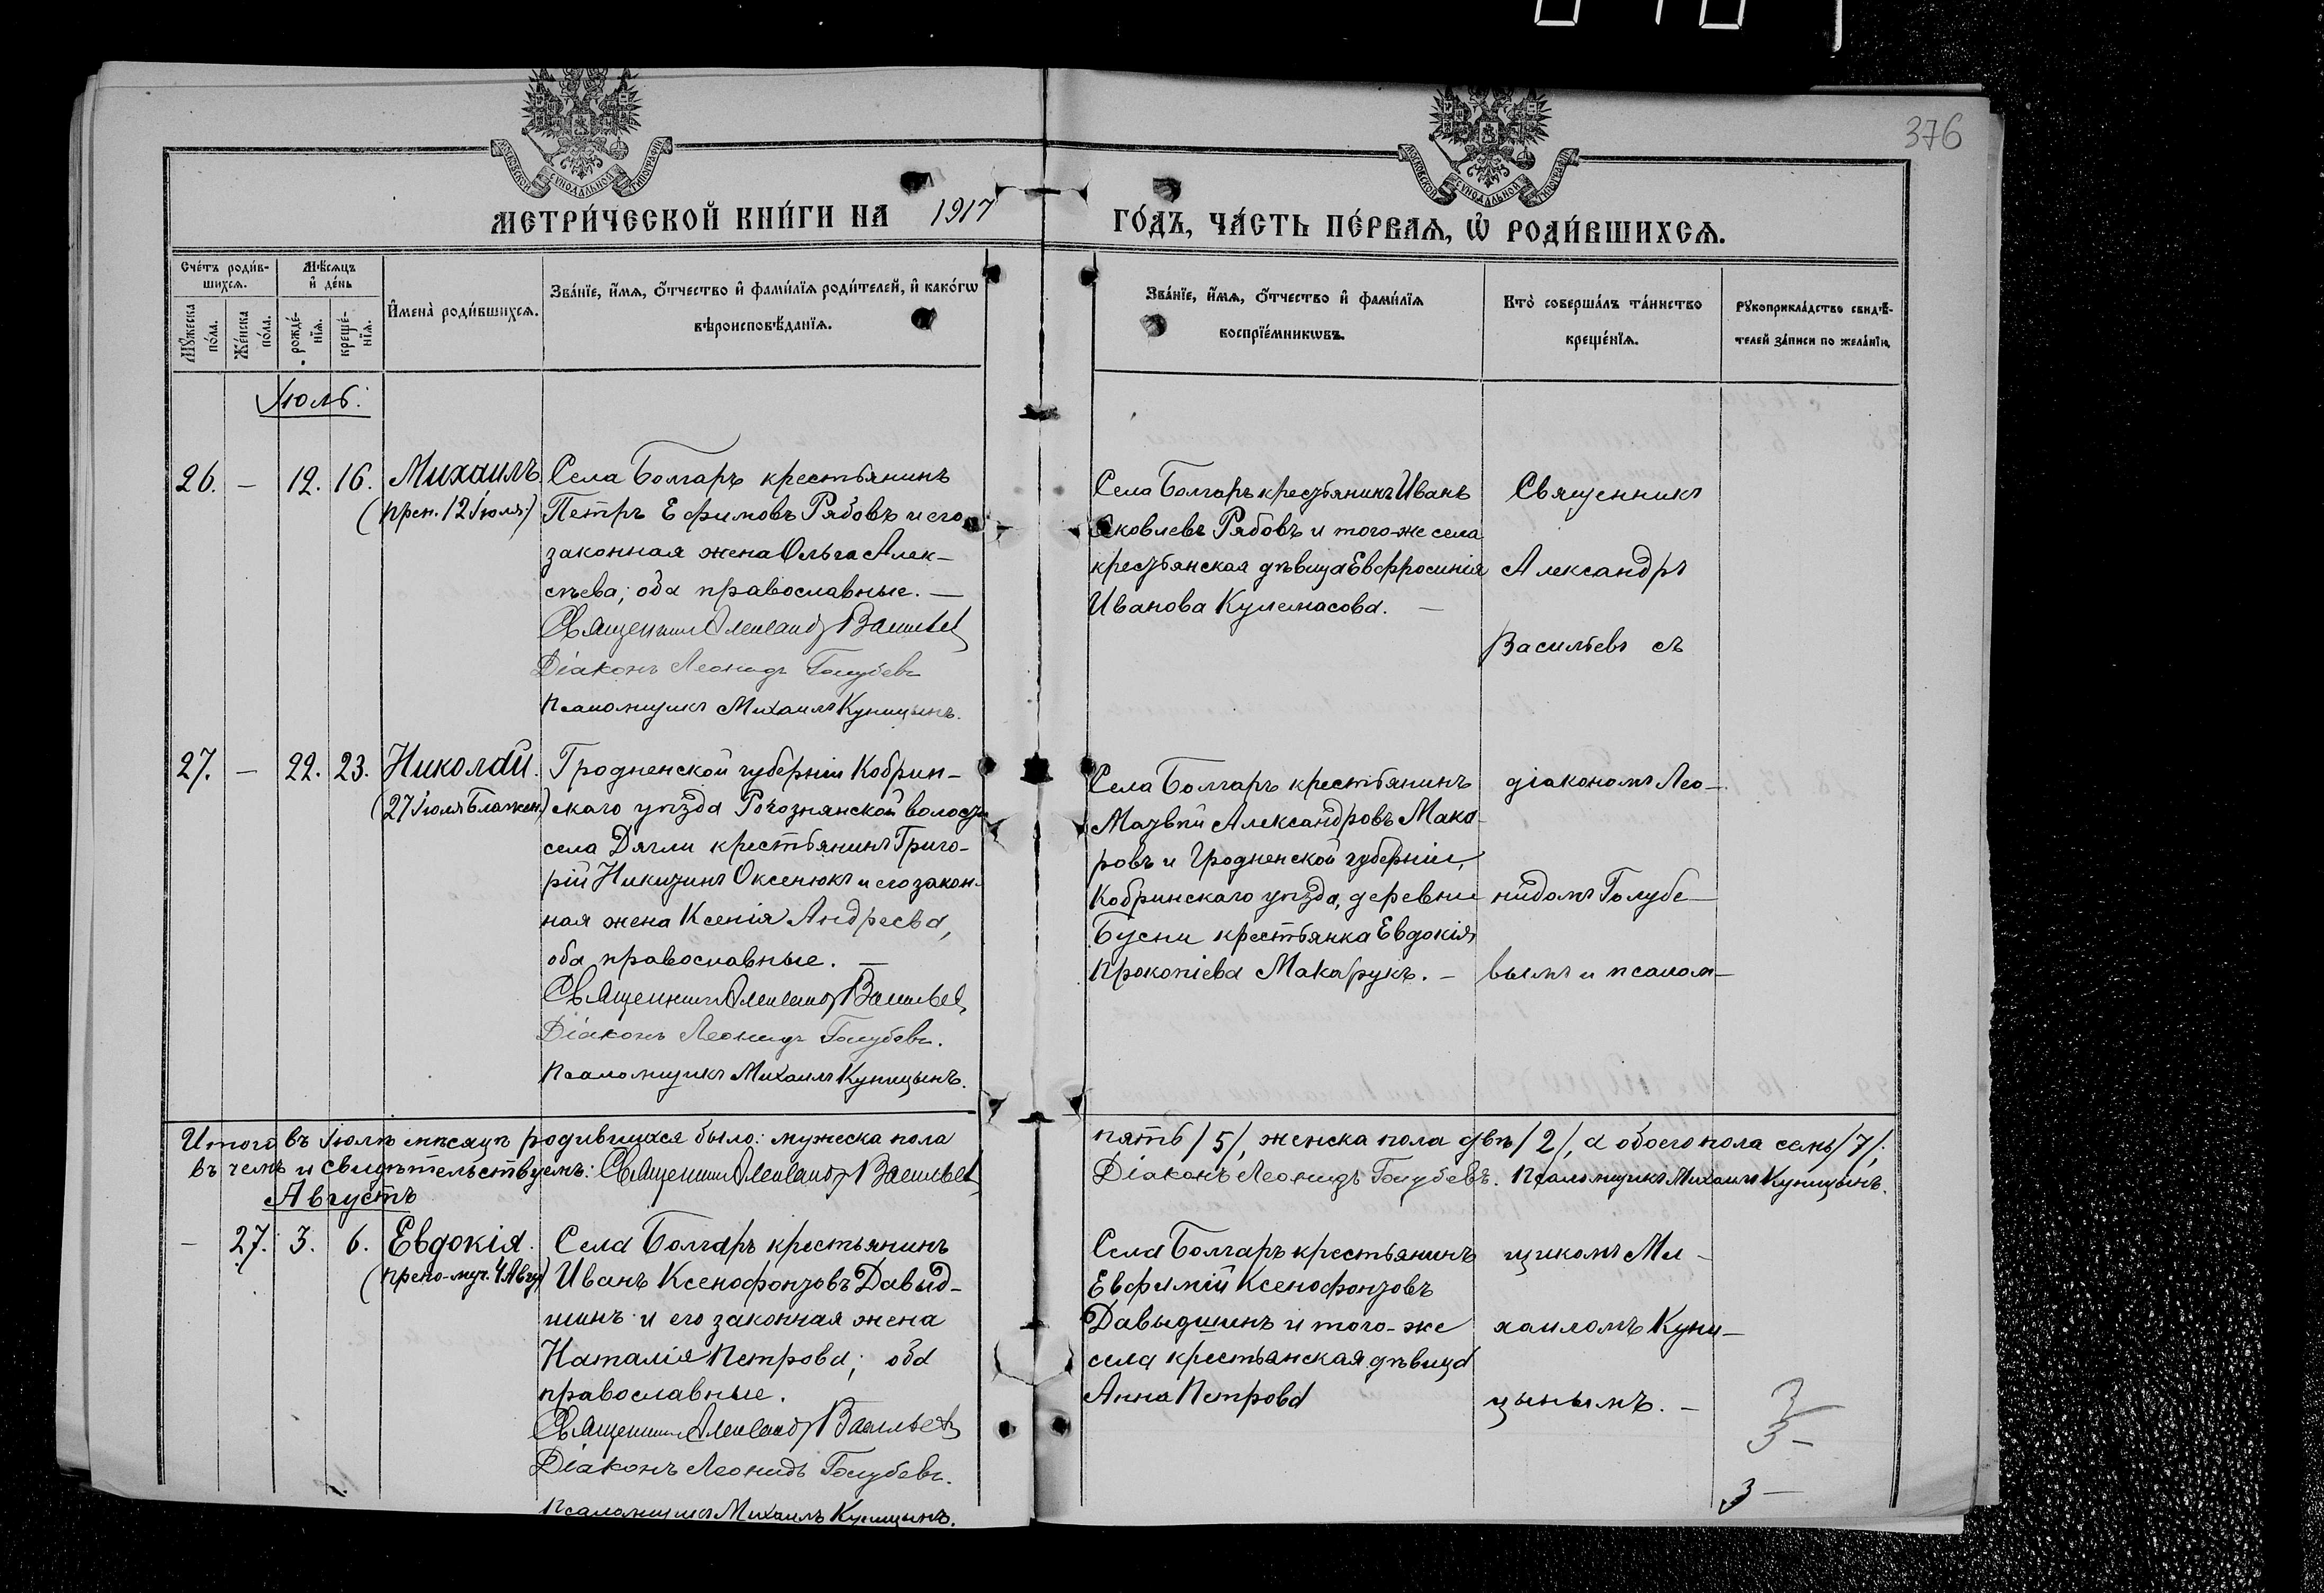 376
МОСКОВСКОЙ СѴНОДАЛЬНОЙ ТИПОГРАФІИ
МОСКОВСКОЙ СѴНОДАЛЬНОЙ ТИПОГРАФІИ
МЕТРИ́ЧЕСКОЙ КНИ́ГИ НА 1917 ГО́ДЪ, ЧА́СТЬ ПЕ́РВАѦ, Ѡ҆ РОДИ́ВШИХСѦ.
Сче́тъ роди́в-
шихсѧ.
Мѣ́сѧцъ
и҆ де́нь
Мꙋ́жеска
по́ла.
Же́нска
по́ла.
рожде́-
нїѧ.
креще́-
нїѧ.
И҆мена̀ роди́вшихсѧ.
Зва́нїе, и҆́мѧ, ѻ҆́тчество и҆ фами́лїѧ роди́телей, и҆ како́гѡ
вѣроисповѣ́данїѧ.
Зва́нїе, и҆́мѧ, ѻ҆́тчество и҆ фами́лїѧ
воспрїе́мникѡвъ.
Кто̀ соверша́лъ та́инство
креще́нїѧ.
Рꙋкоприкла́дство свидѣ́-
телей за́писи по жела́нїю.
Іюль.
26. — 12. 16. Михаилъ
(преп. 12 Іюля)
Села Болгаръ крестьянинъ
Петръ Ефимовъ Рябовъ и его
законная жена Ольга Алек-
сѣева; оба православные. —
Священникъ Александръ Васильевъ
Діаконъ Леонидъ Голубевъ
Псаломщикъ Михаилъ Куницынъ.
Села Болгаръ крестьянинъ Иванъ
Яковлевъ Рябовъ и того-же села
крестьянская дѣвица Евфросинія
Иванова Кулемасова. —
Священникъ
Александръ
Васильевъ съ
27. — 22. 23. Николай.
(27 Іюля Блажен.)
Гродненской губерніи Кобрин-
скаго уѣзда волости
села Дягли крестьянинъ Григо-
рій Никитинъ Оксенюкъ и его закон-
ная жена Ксенія Андреева,
оба православные. —
Священникъ Александръ Васильевъ
Діаконъ Леонидъ Голубевъ.
Псаломщикъ Михаилъ Куницынъ.
Села Болгаръ крестьянинъ
Матвѣй Александровъ Мака-
ровъ и Гродненской губерніи,
Кобринскаго уѣзда, деревни
Бусни крестьянка Евдокія
Прокопіева Макарукъ. —
діакономъ Лео-
нидомъ Голубе-
вымъ и псалом-
Итого въ Іюлѣ мѣсяцѣ родившихся было: мужеска пола пять /5/, женска пола двѣ /2/, а обоего пола семь /7/.
въ чемъ и свидѣтельствуемъ: Священникъ Александръ Васильевъ Діаконъ Леонидъ Голубевъ. Псаломщикъ Михаилъ Куницынъ.
Августъ
— 27. 3. 6. Евдокія.
(препо-муч. 4 Авгу)
Села Болгаръ крестьянинъ
Иванъ Ксенофонтовъ Давыд-
шинъ и его законная жена
Наталія Петрова; оба
православные.
Священникъ Александръ Васильевъ
Діаконъ Леонидъ Голубевъ.
Псаломщикъ Михаилъ Куницынъ.
Села Болгаръ крестьянинъ
Евфимій Ксенофонтовъ
Давыдшинъ и того-же
села крестьянская дѣвица
Анна Петрова
щикомъ Ми-
хаиломъ Куни-
цынымъ. —
3 —
3 —